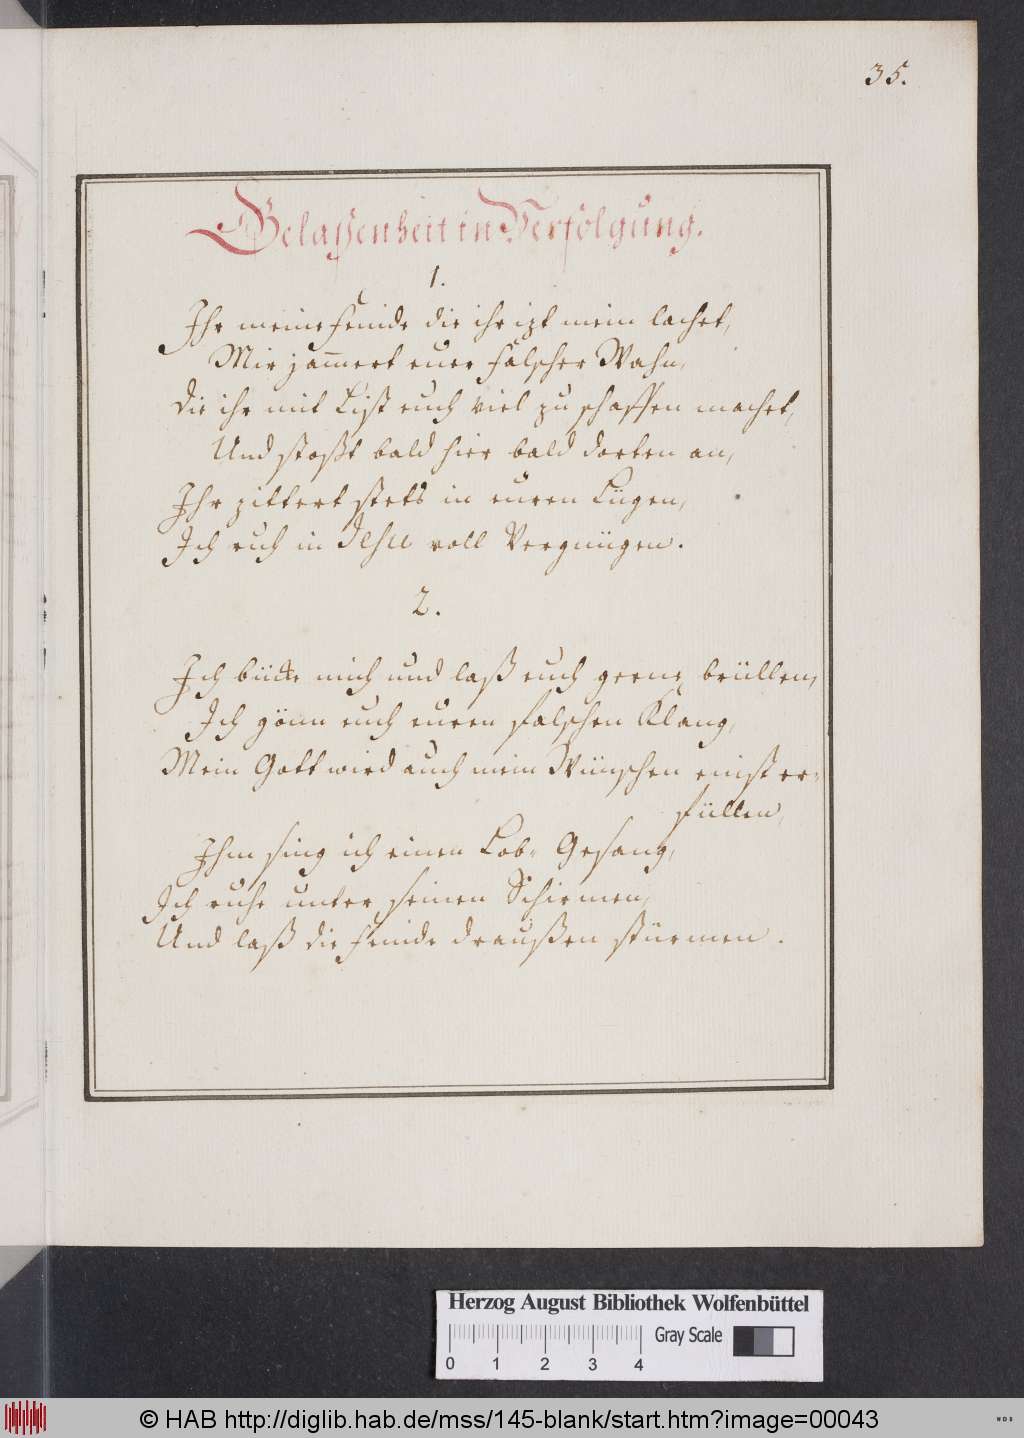 35.
Gelaßenheit in Verfolgung.
1.
Ihr meine Feinde die ihr izt mein lachet,
Mir jam̄ert euer falscher Wahn,
Die ihr mit List euch viel zu schaffen machet,
Und stoßt bald hier bald dorten an,
Ihr zittert stets in euren Lügen,
Ich ruh in Jesu voll Vergnügen.
2.
Ich bücke mich und laß euch gerne brüllen,
Ich gönn euch euren falschen Klang,
Mein Gott wird auch mein Wünschen einst er-
füllen,
Ihm sing ich einen Lob- Gesang,
Ich ruhe unter seinen Schirmen,
Und laß die Feinde draußen stürmen.
Herzog August Bibliothek Wolfenbüttel
Gray Scale
0 1 2 3 4
© HAB http://diglib.hab.de/mss/145-blank/start.htm?image=00043